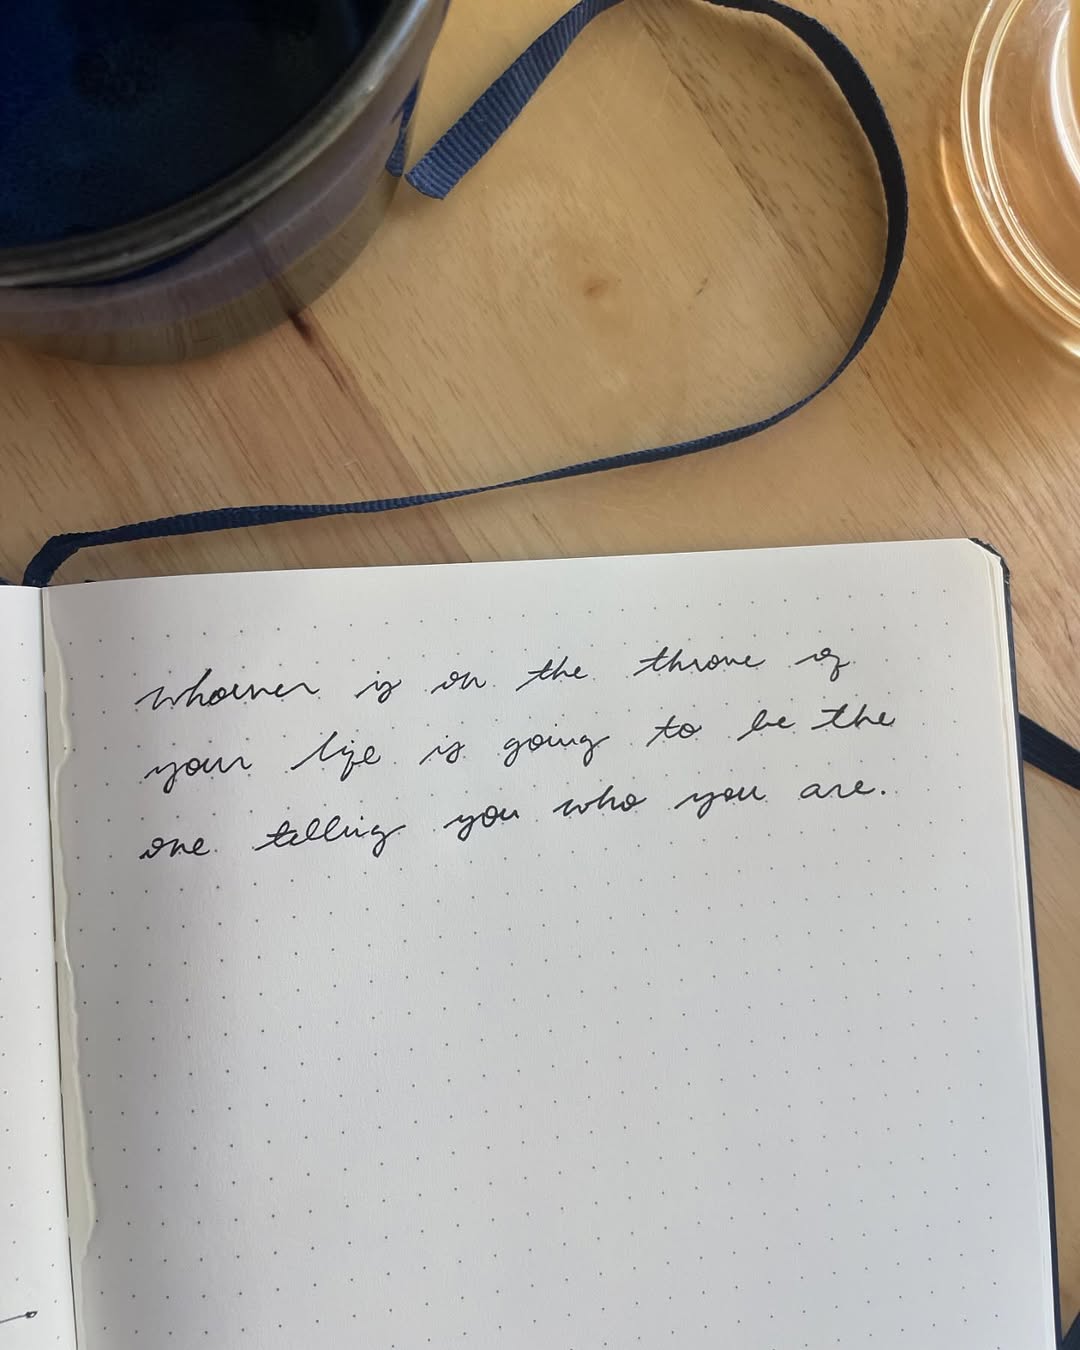 whoever is on the throne of
your life is going to be the
one telling you who you are.